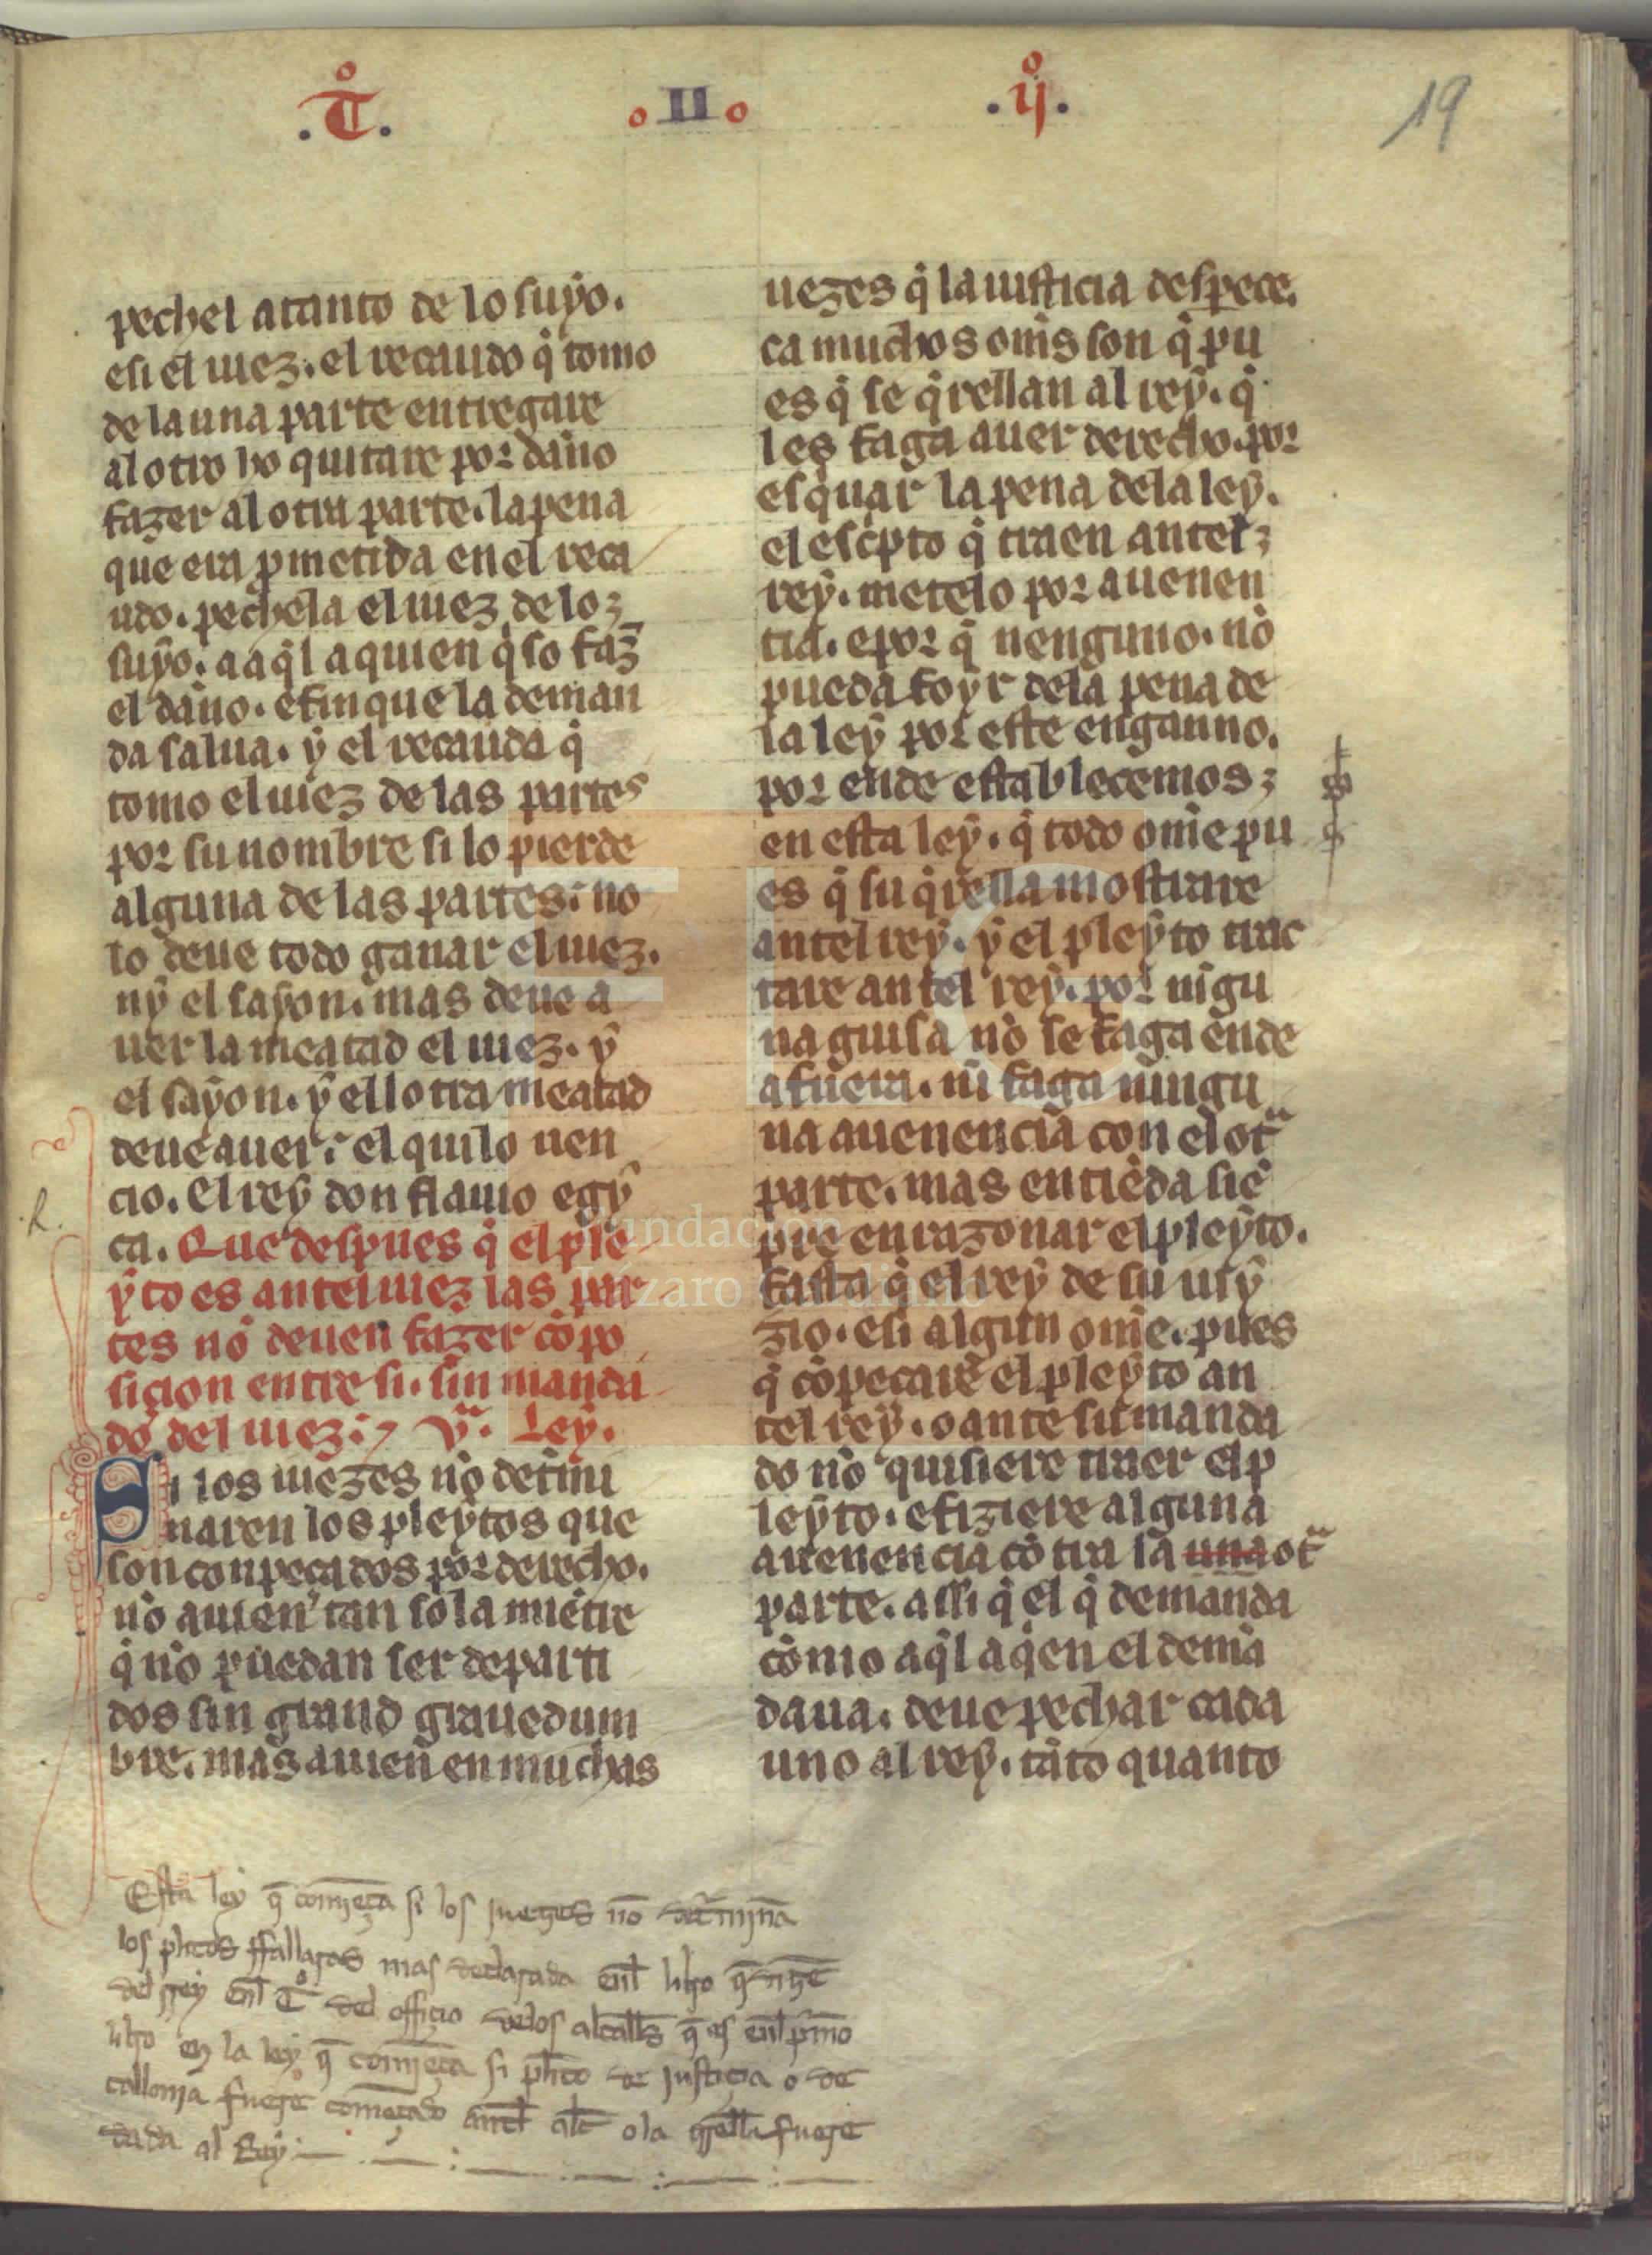 .Tͦ. II .ijͦ. 19
pechel atanto de lo suẏo.
esi el iuez. el recaudo q̇ tomo
de la una parte entregare
al otro ho quitare por dan̄o
fazer al otra parte. la pena
que era ꝓmetida en el reca
udo. pechela el iuez de lo
suẏo. a aq̇l a quien q̇so faz̄
el dan̄o. efinque la deman
da salua. ẏ el recauda q̇
tomo el iuez de las partes
por su nombre si lo pierde
alguna de las partes: no
lo deue todo ganar el iuez.
nẏ el sayon. mas deue a
uer la meatad el iuez. ẏ
el sayon. ẏ ell otra meatad
deue auer: el qui lo uen
cio. El reẏ don flauio egẏ
ca. Que despues q̇ el ple
ẏto es antel iuez las par
tes nō deuen fazer cōpo
sicion entre si. sin manda
do del iuez: vͣ. Leẏ.
Si los iuezes nō det̄mi
naren los pleẏtos que
son conpeçados por derecho.
nō auien tan sola miētre
q̇ nō puedan ser departi
dos sin grand grauedum
bre. mas auien en muchas
uezes q̇ la iusticia despece.
ca muchos om̄s son q̇ pu
es q̇ se q̇rellan al reẏ. q̇
les faga auer derecho. por
esq̇uar la pena de la leẏ.
el esċpto q̇ traen antel
reẏ. metelo por auenen
tia. epor q̇ nenguno. nō
pueda foẏr dela pena de
la leẏ por este enganno.
por ende establecemos
en esta leẏ. q̇ todo om̄e pu
es q̇ su q̇rella mostrare
antel reẏ. ẏ el pleẏto trac
tare antel reẏ. por nīgu
na guisa nō se faga ende
afuera. nī faga ningu
na auenencia con el otͣ
parte. mas entiēda siē
pre en razonar el pleẏto.
fasta q̇ el reẏ de su iuẏ
zio. esi algun om̄e. pues
q̇ cōpeçare el pleẏto an
tel reẏ. o ante su manda
do nō quisiere traer el p
leẏto. efiziere alguna
auenencia cōtra la una otͣ
parte. assi q̇ el q̇ demanda
cōmo aq̇l aq̇en el demā
daua. deue pechar cada
uno al reẏ. tāto quanto
Esta ley q̄ comieça si los juezes nō det̄mjnā
los pl̄itos ffallaras mas declarada enl̄ libro q̄ dizē
del Rey enl̄ Tͦ del officio delos alcalłs q̄ es enl̄ p̄mo
libro en la ley q̄ comieça si pl̄ito de justicia o de
callonja fuere comēçado antel̄ alł o la q̄rella fuere
dada al Rey